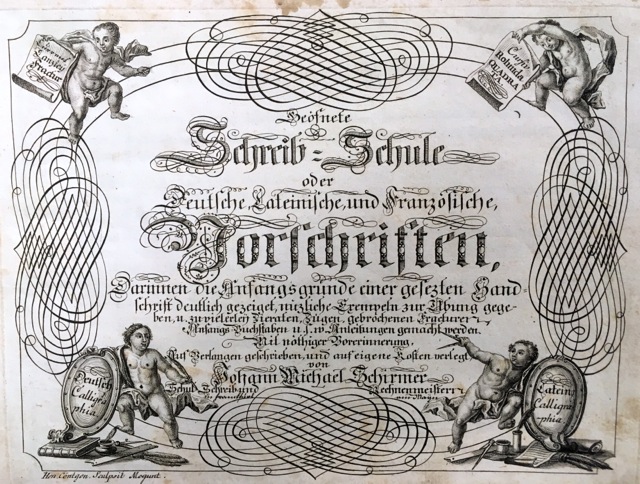 Currens
Canzley
Fractur
Cursiv
Rotunda
QUADRA
TA
Geöfnete
Schreib=Schule
oder
Teutsche, Lateinische, und Französische,
Vorschriften,
Darinnen die Anfangsgründe einer gesezten Hand=
schrift deutlich gezeiget, nüzliche Exempeln zur Übung gege=
ben, u. zu vielerley Zieraten, Zügen, gebrochenen Fracturen
Anfangs Buchstaben u. s. w. Anleitungen gemacht werden.
Mit nöthiger Vorerinnerung,
Auf Verlangen geschrieben, und auf eigene Kosten verlegt
von
Johann Michael Schirmer
Schul Schreib und Rechenmeister
in Franckfurt am Mayn
Deutsch
Calligra
phia
Latein
Calligra
-phia
Hen. Cöntgen Sculpsit Mogunt.